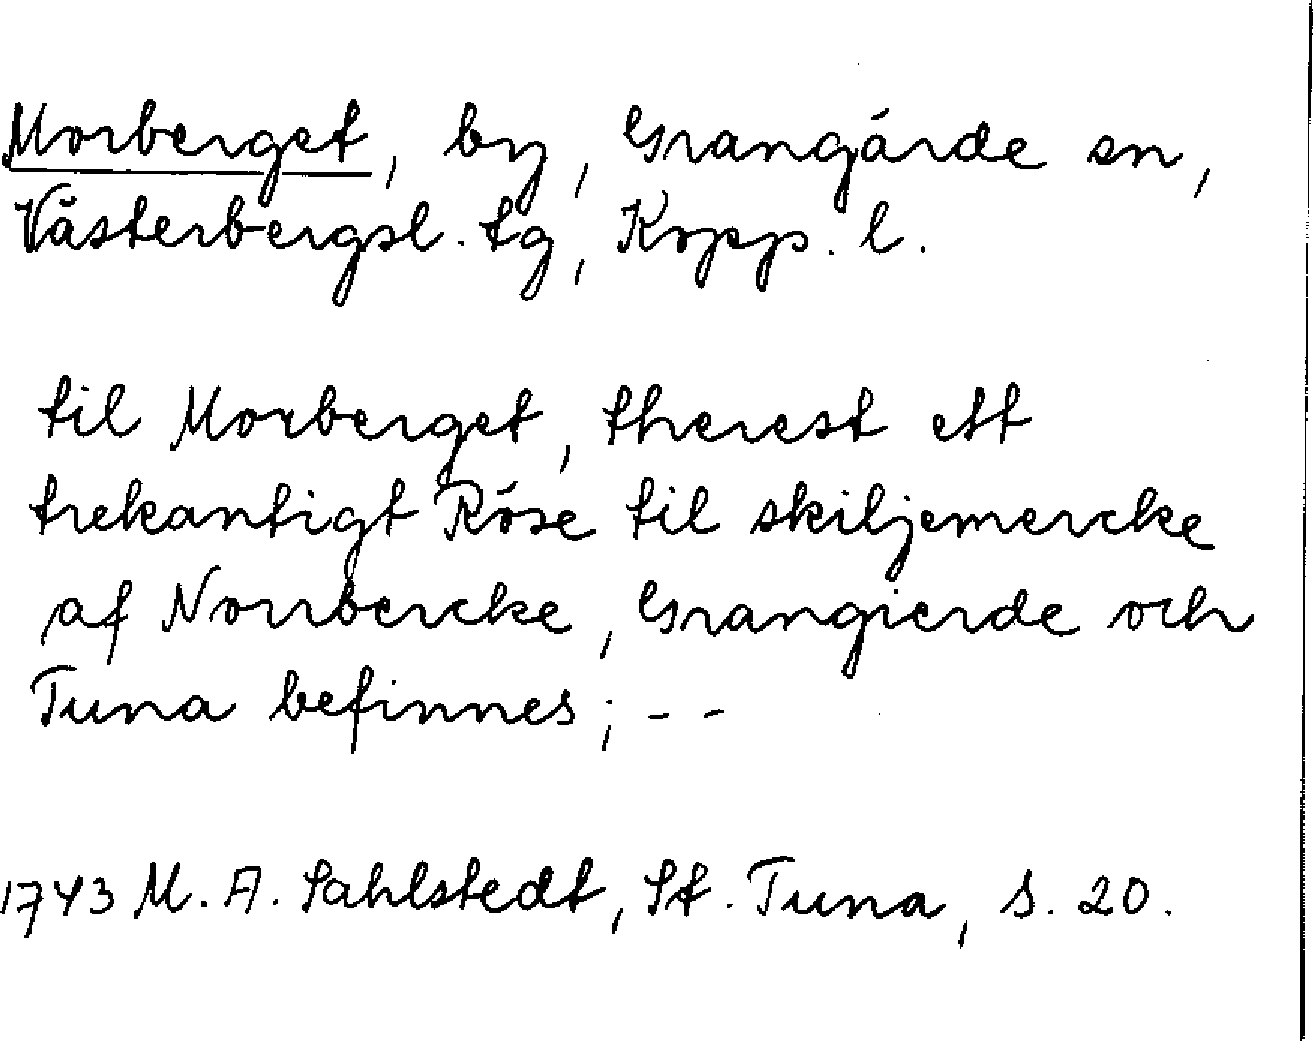 Morberget, by, Grangärde sn,
Västerbergsl. tg, Kopp. l.
til Morberget, therest ett
trekantigt Röse til skiljemercke
af Norrbercke, Grangierde och
Tuna befinnes; - -
1743 M. A. Sahlstedt, St. Tuna, s. 20.